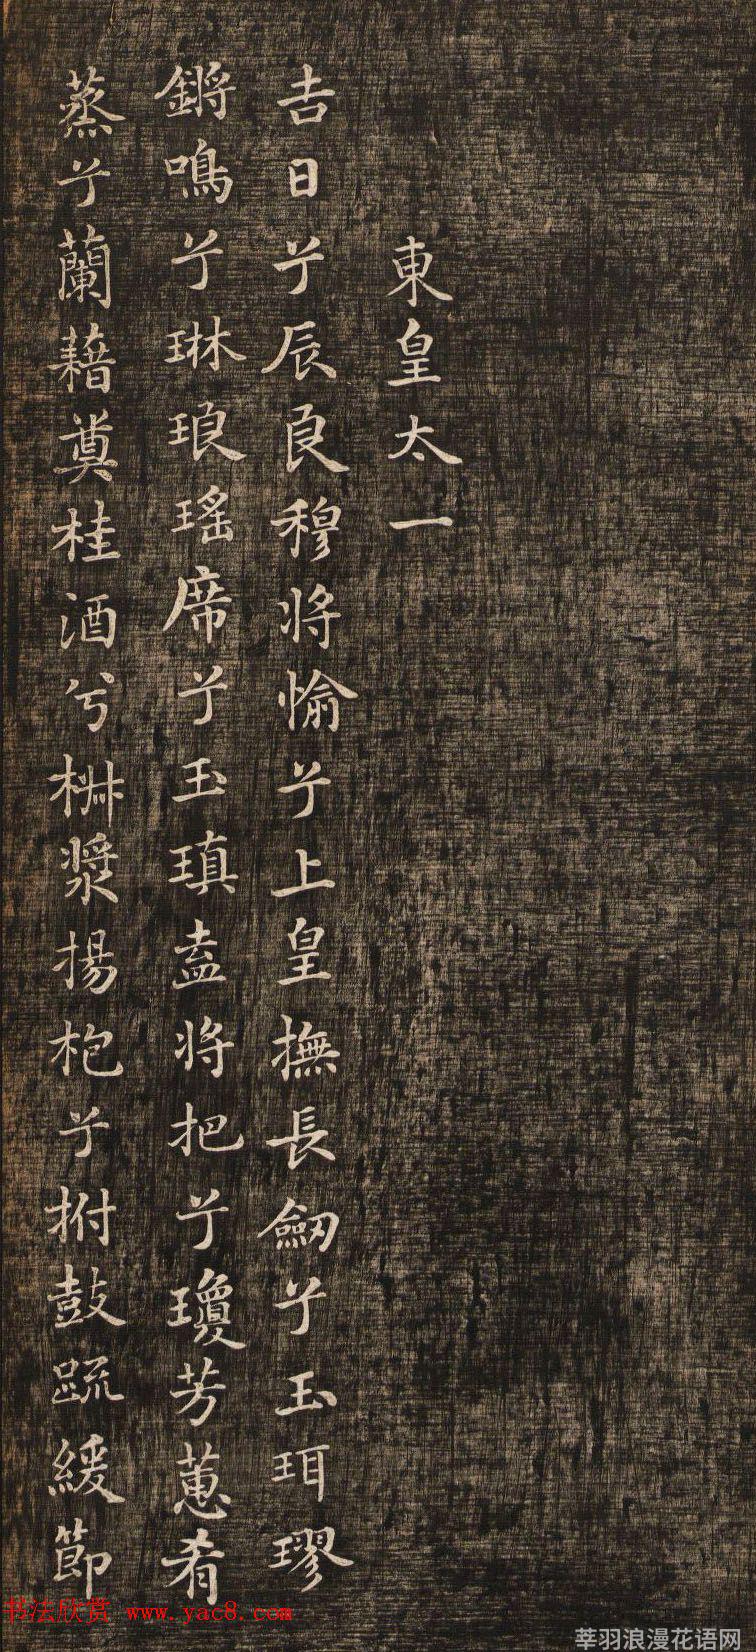 東皇太一
吉日兮辰良穆將愉兮上皇撫長劒兮玉珥璆
鏘鳴兮琳琅瑤席兮玉瑱盍將把兮瓊芳蕙肴
蒸兮蘭藉奠桂酒兮椒漿揚枹兮拊鼓疏緩節
书法欣赏 www.yac8.com
莘羽浪漫花语网